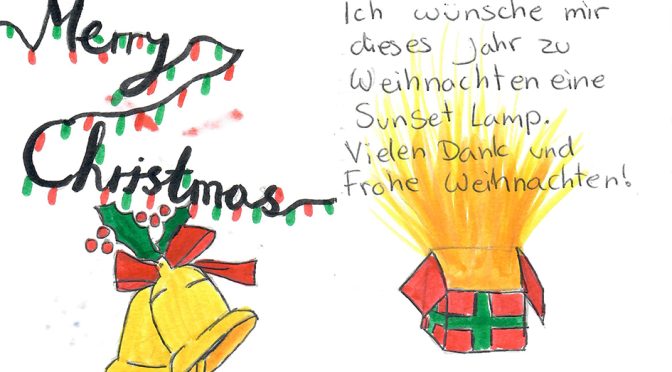 Merry
Christmas
Ich wünsche mir
dieses Jahr zu
Weihnachten eine
Sunset Lamp.
Vielen Dank und
Frohe Weihnachten!